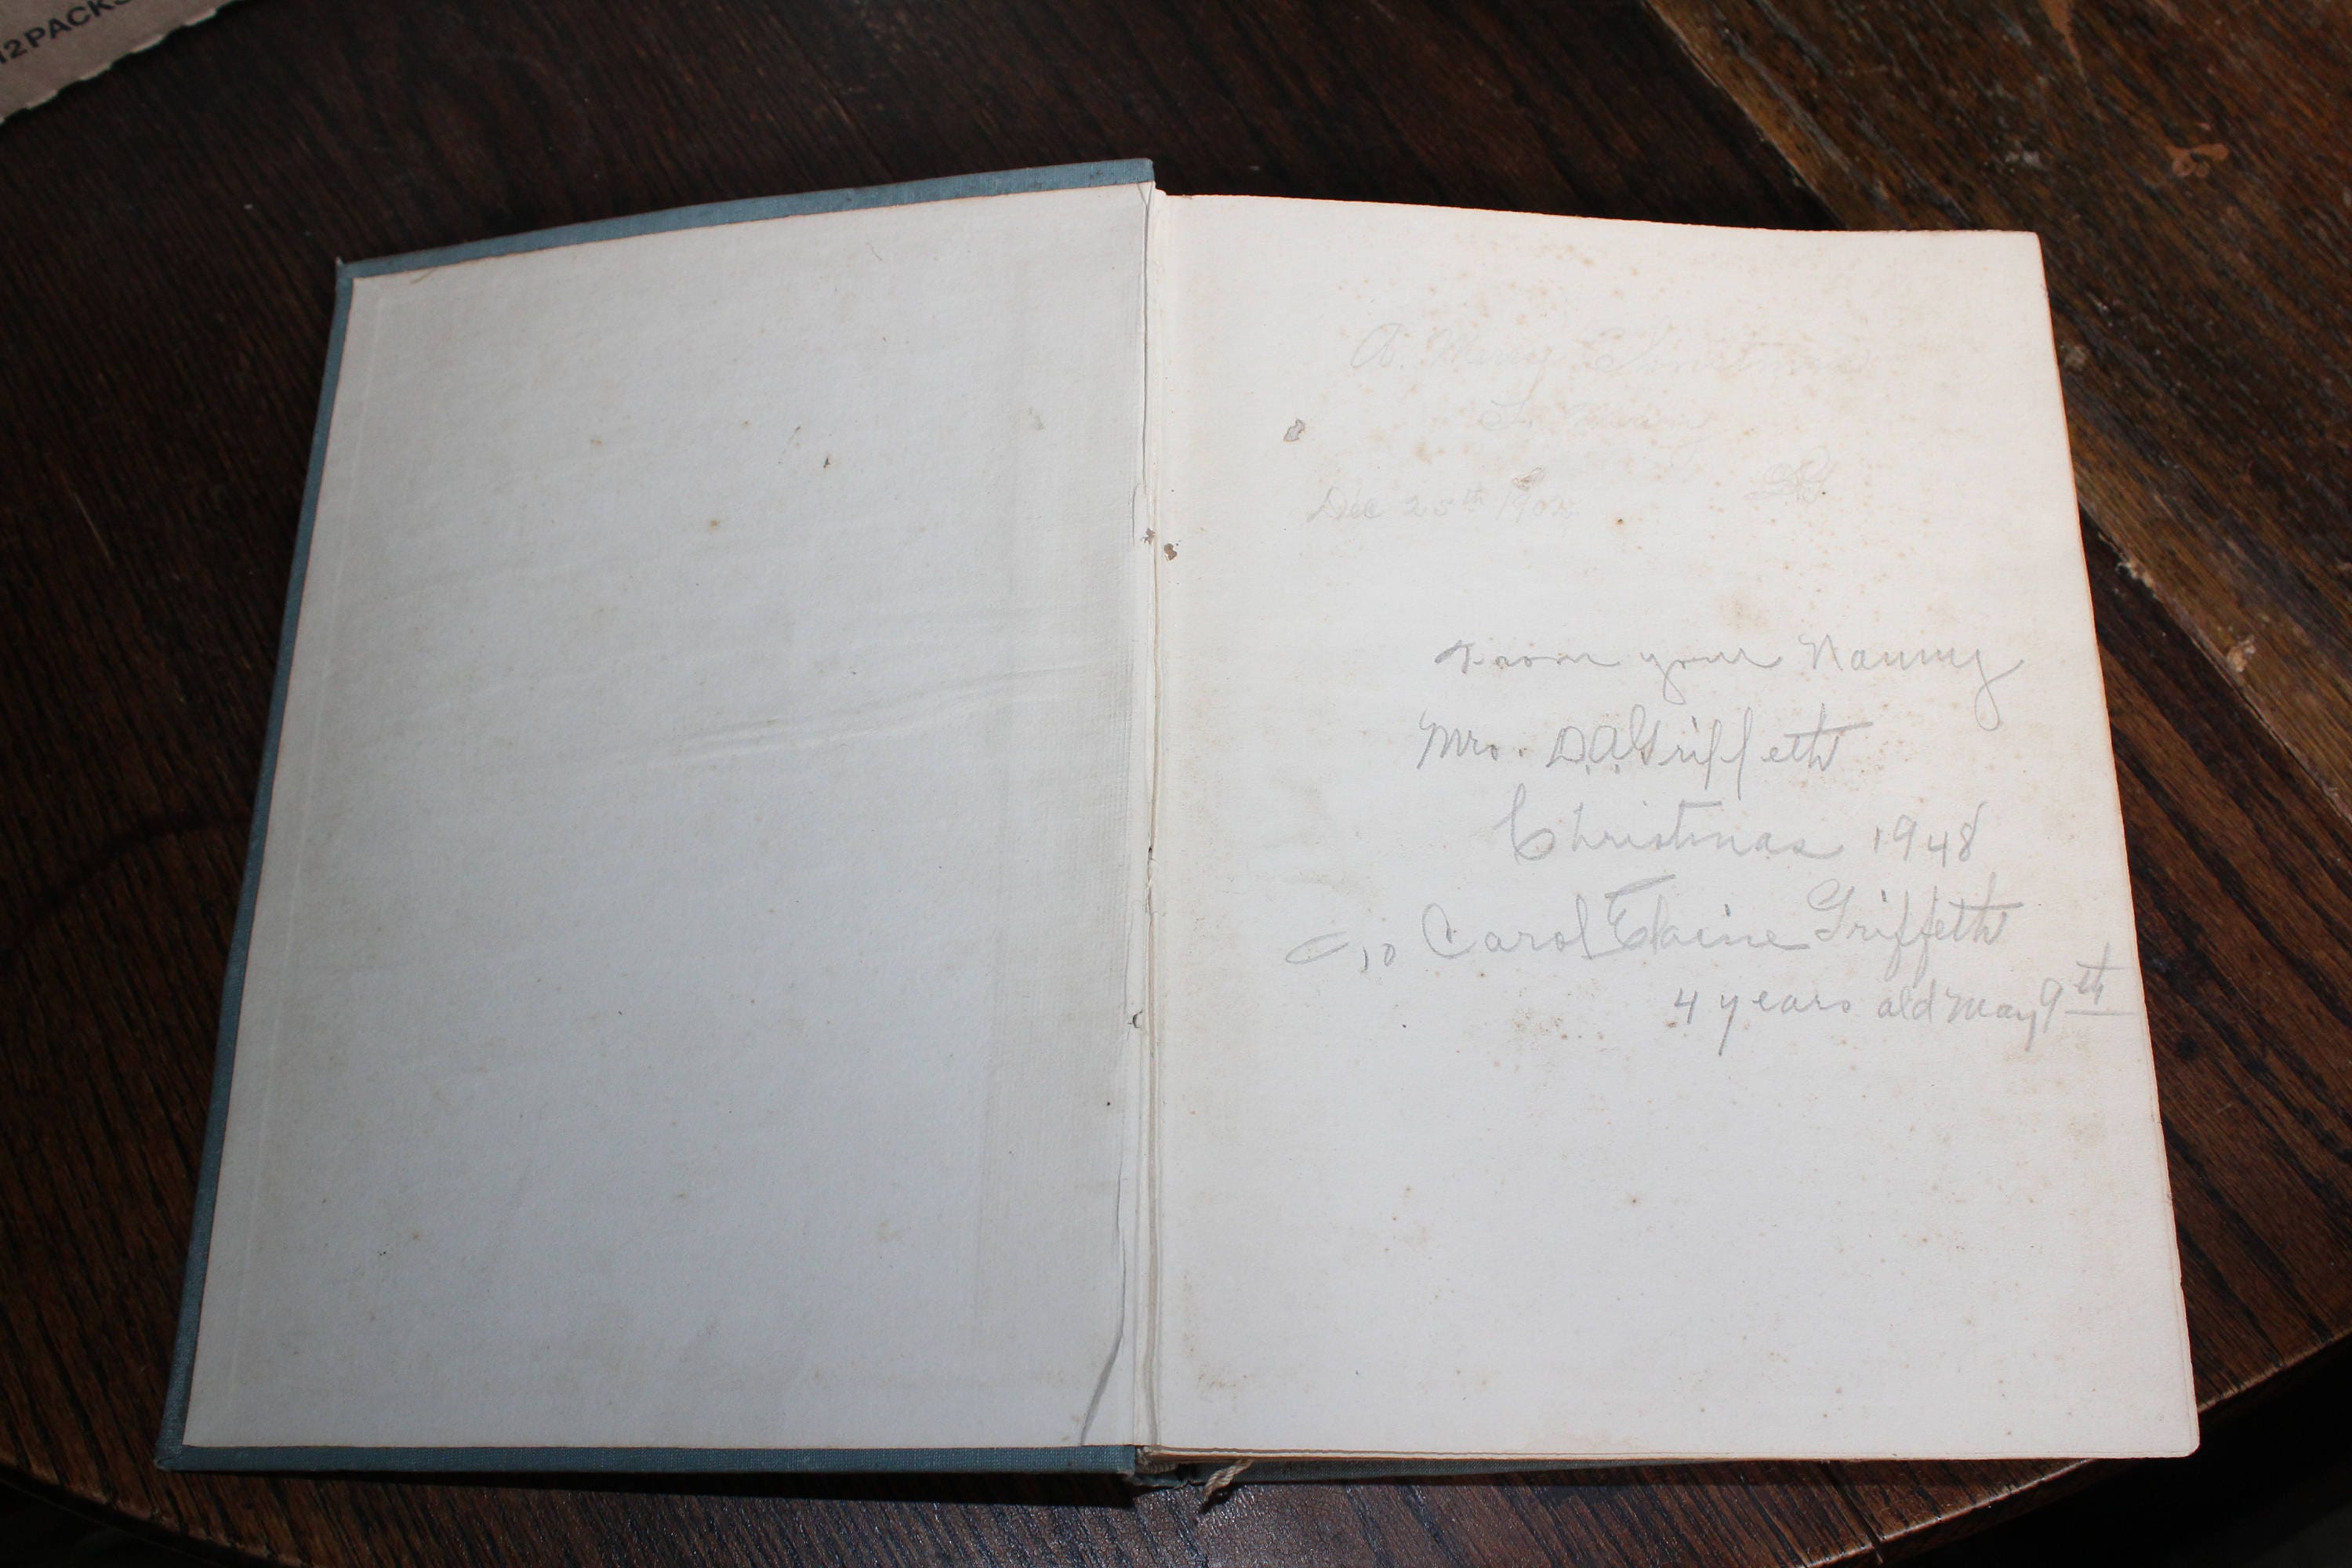 12PACKS
A. Merry Christmas
To
Dec 25th
From your Nanny
Mrs. D.A. Griffeth
Christmas 1948
To Carol Elaine Griffeth
4 years old May 9th